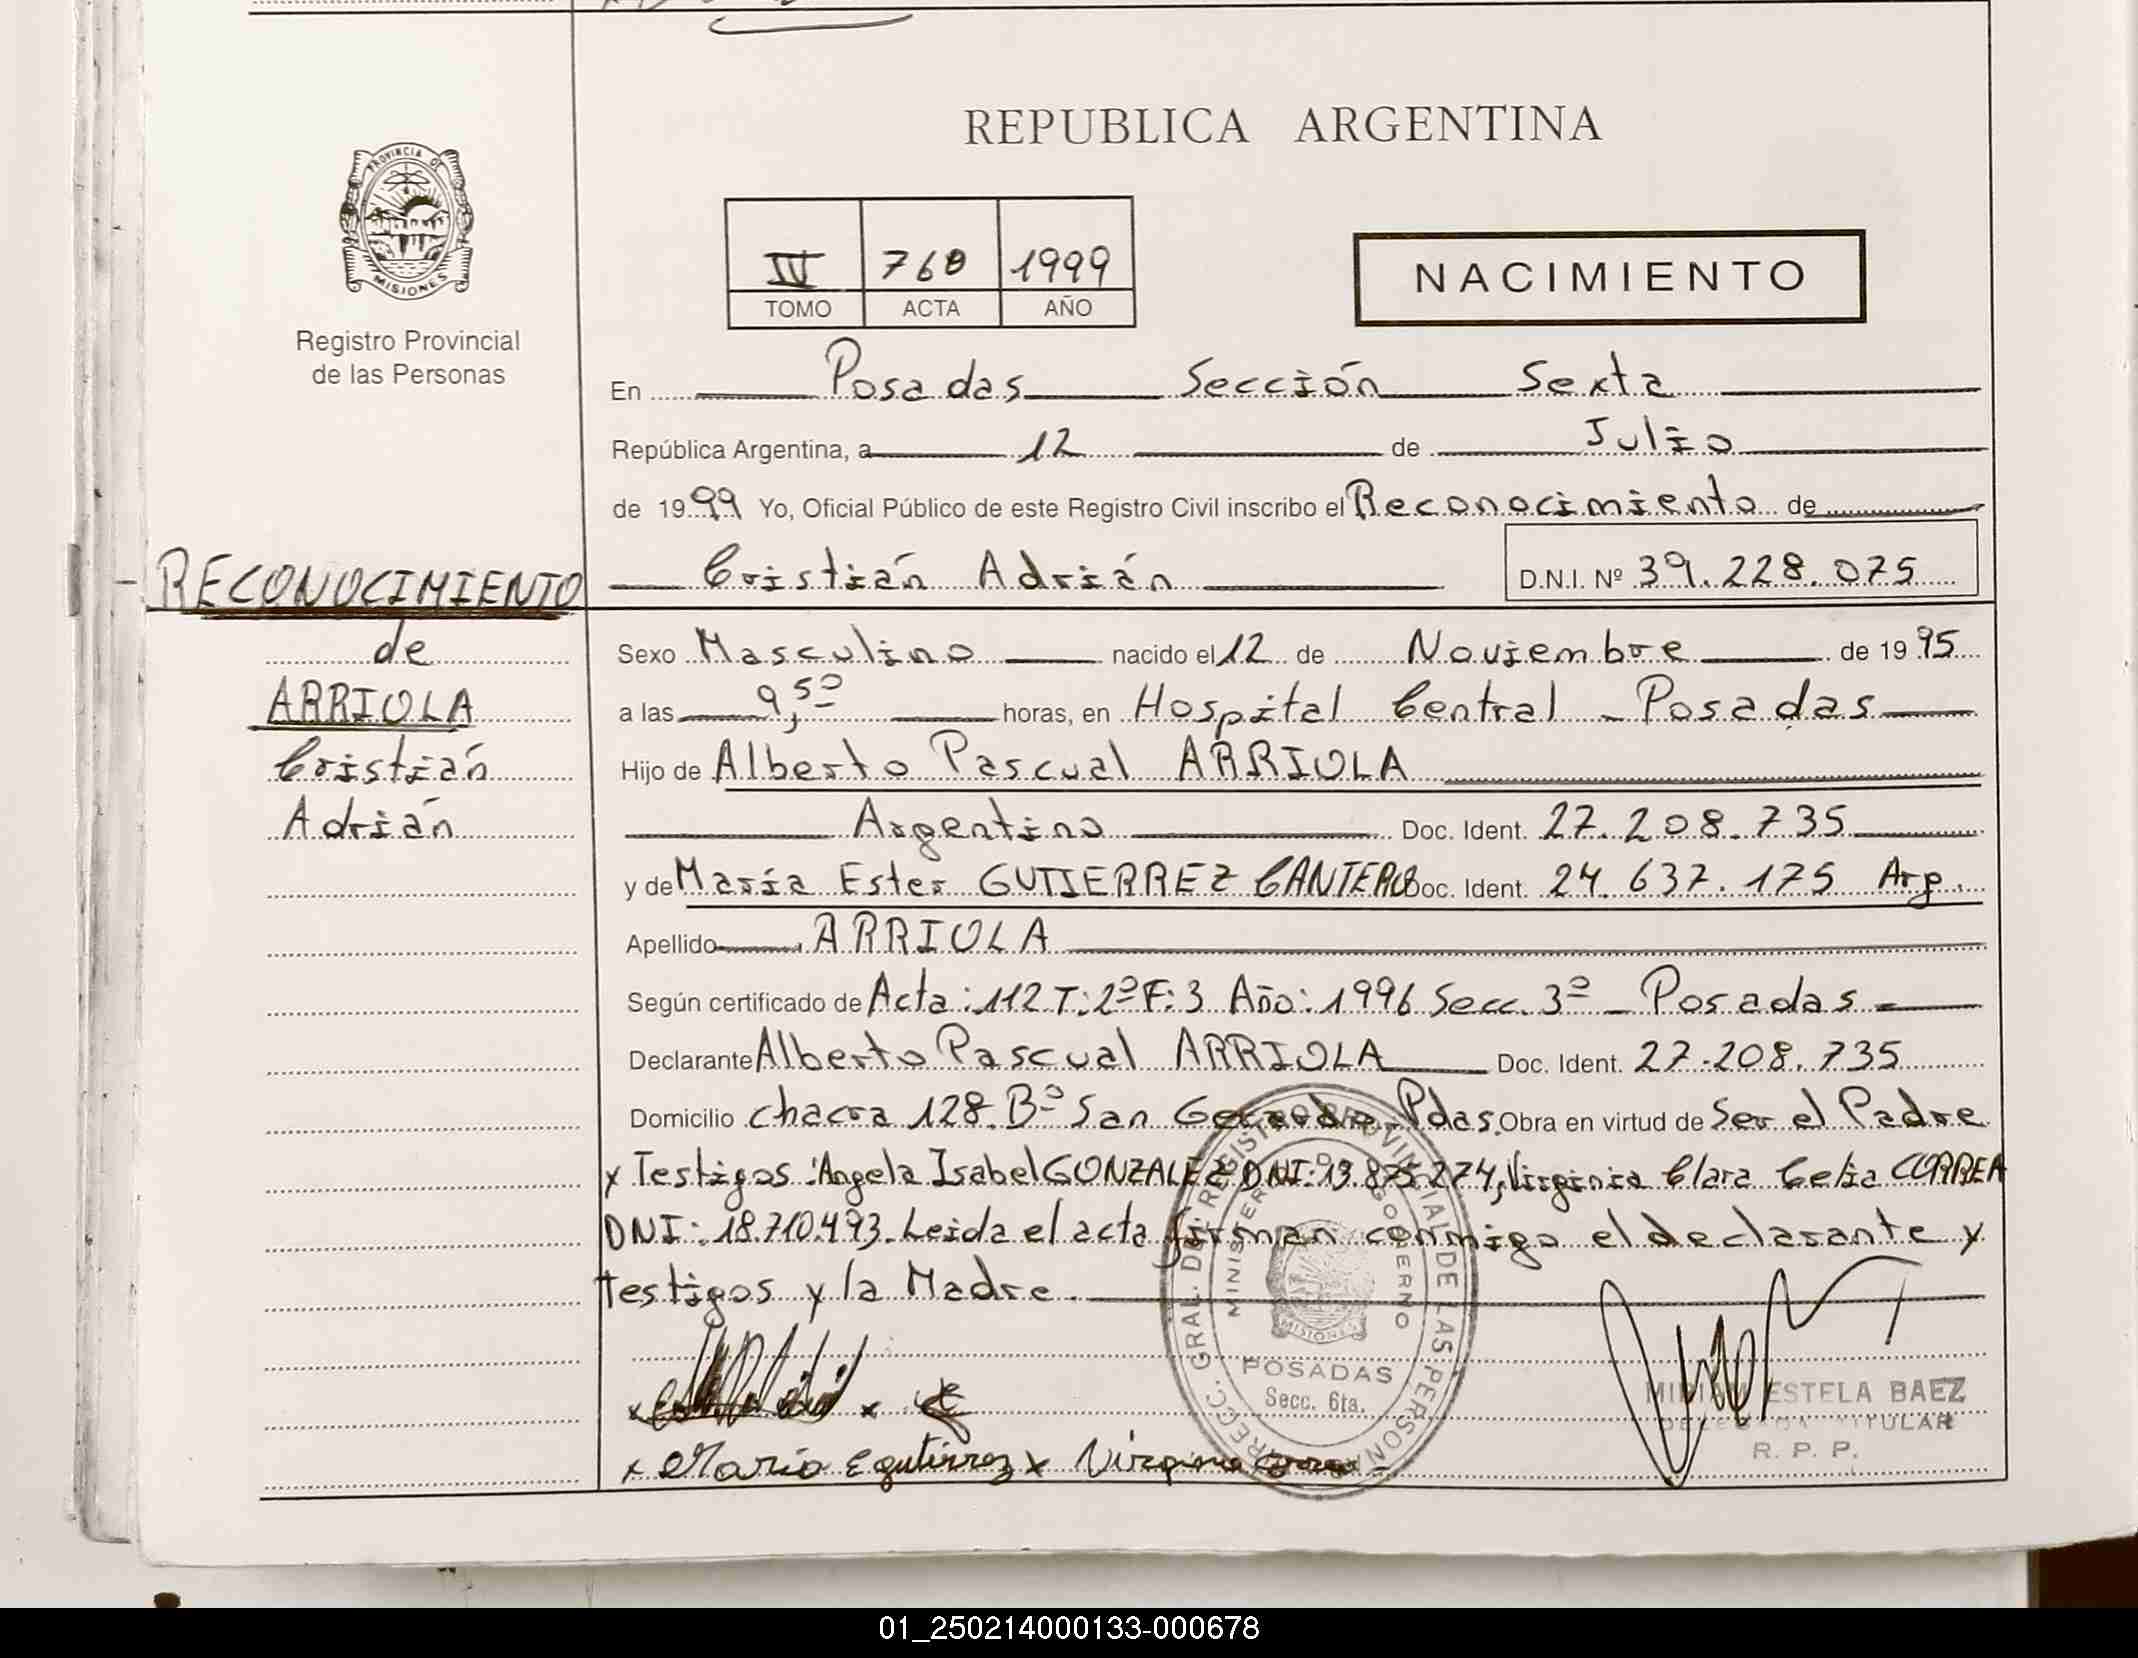 REPUBLICA ARGENTINA
PROVINCIA DE
MISIONES
Registro Provincial
de las Personas
IV 760 1999
TOMO ACTA AÑO
NACIMIENTO
En Posadas Sección Sexta
República Argentina, a 12 de Julio
de 1999 Yo, Oficial Público de este Registro Civil inscribo el Reconocimiento de
Cristián Adrián D.N.I. Nº 39.228.075
RECONOCIMIENTO
de
ARRIOLA
Cristián
Adrián
Sexo Masculino nacido el 12 de Noviembre de 1995
a las 9,50 horas, en Hospital Central - Posadas
Hijo de Alberto Pascual ARRIOLA
Argentino Doc. Ident. 27.208.735
y de María Ester GUTIERREZ CANTERO Doc. Ident. 24.637.175 Arg.
Apellido ARRIOLA
Según certificado de Acta: 112 T: 2º F: 3 Año: 1996 Secc. 3º - Posadas -
Declarante Alberto Pascual ARRIOLA Doc. Ident. 27.208.735
Domicilio chacra 128. Bº San Gerardo - Pdas. Obra en virtud de Ser el Padre
y Testigos: Angela Isabel GONZALEZ DNI: 13.875.274, Virginia Clara Celia CORREA
DNI: 18.710.493. Leida el acta firman conmigo el declarante y
testigos y la Madre.
DIRECC. GRAL. DEL REGISTRO PROVINCIAL DE LAS PERSONAS
MINISTERIO DE GOBIERNO
MISIONES
POSADAS
Secc. 6ta.
MIRIAM ESTELA BAEZ
DELEGADA TITULAR
R. P. P.
x x
x Maria E gutierrez x Virginia
01_250214000133-000678